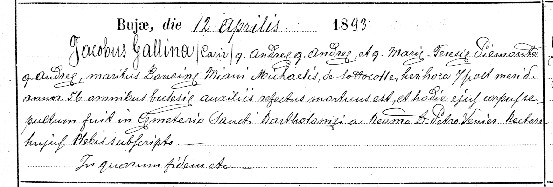 Bujæ, die 12 Aprilis 1893
Jacobus Gallina (Cair) q. Andreæ q. Andreæ, et q. Mariæ Teresiæ Piemonte
q. Andreæ, maritus Dominicæ Miani Michaelis, de Sottocolle, heri hora 7 post meridi.
annor. 56 omnibus Ecclesiæ auxiliis refectus mortuus est, et hodie ejus corpus se-
pultum fuit in Cœmeterio Sancti Bartholomæi a Rev.mo D. Petro Venier Rectore
hujus Plebis subscripto. —
In quorum fidem etc